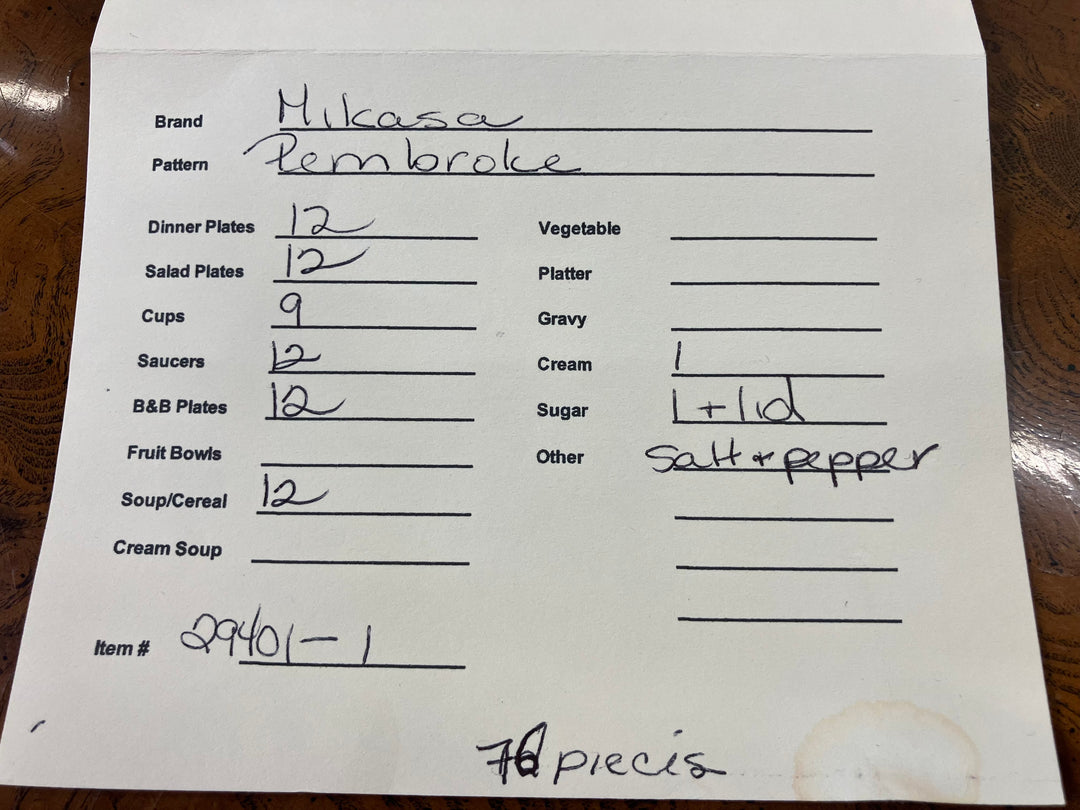 Brand Mikasa
Pattern Pembroke
Dinner Plates 12
Salad Plates 12
Cups 9
Saucers 12
B&B Plates 12
Fruit Bowls
Soup/Cereal 12
Cream Soup
Vegetable
Platter
Gravy
Cream 1
Sugar 1 + lid
Other Salt + pepper
Item # 29401-1
76 pieces